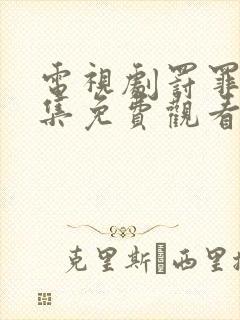 電視劇罰罪
集免費觀看
克里斯 西里